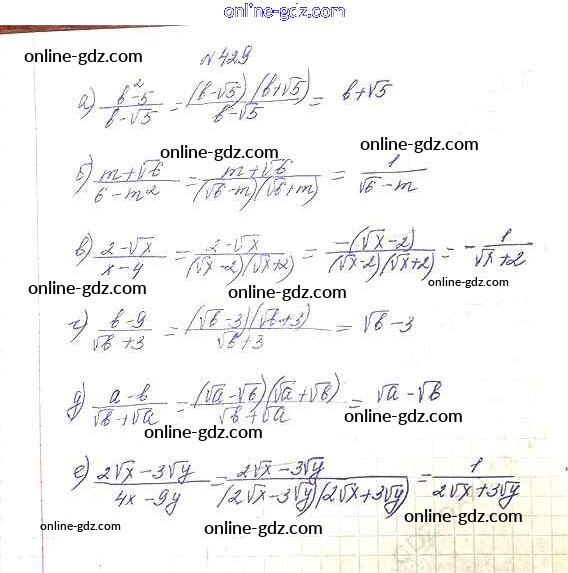 online-gdz.com
№429
online-gdz.com online-gdz.com
а) (b²-5)/(b-√5) = (b-√5)(b+√5)/(b-√5) = b+√5
online-gdz.com
б) (m+√6)/(6-m²) = (m+√6)/((√6-m)(√6+m)) = 1/(√6-m)
online-gdz.com
online-gdz.com
в) (2-√x)/(x-4) = (2-√x)/((√x-2)(√x+2)) = -(√x-2)/((√x-2)(√x+2)) = -1/(√x+2)
online-gdz.com online-gdz.com online-gdz.com
г) (b-9)/(√b+3) = (√b-3)(√b+3)/(√b+3) = √b-3
online-gdz.com
д) (a-b)/(√b+√a) = (√a-√b)(√a+√b)/(√b+√a) = √a-√b
online-gdz.com
online-gdz.com
е) (2√x-3√y)/(4x-9y) = (2√x-3√y)/((2√x-3√y)(2√x+3√y)) = 1/(2√x+3√y)
online-gdz.com online-gdz.com
online-gdz.com